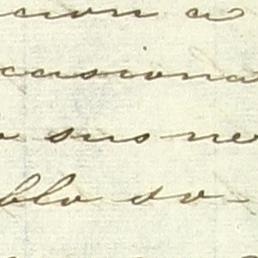 cion a
casiona
sus ne
blo so-